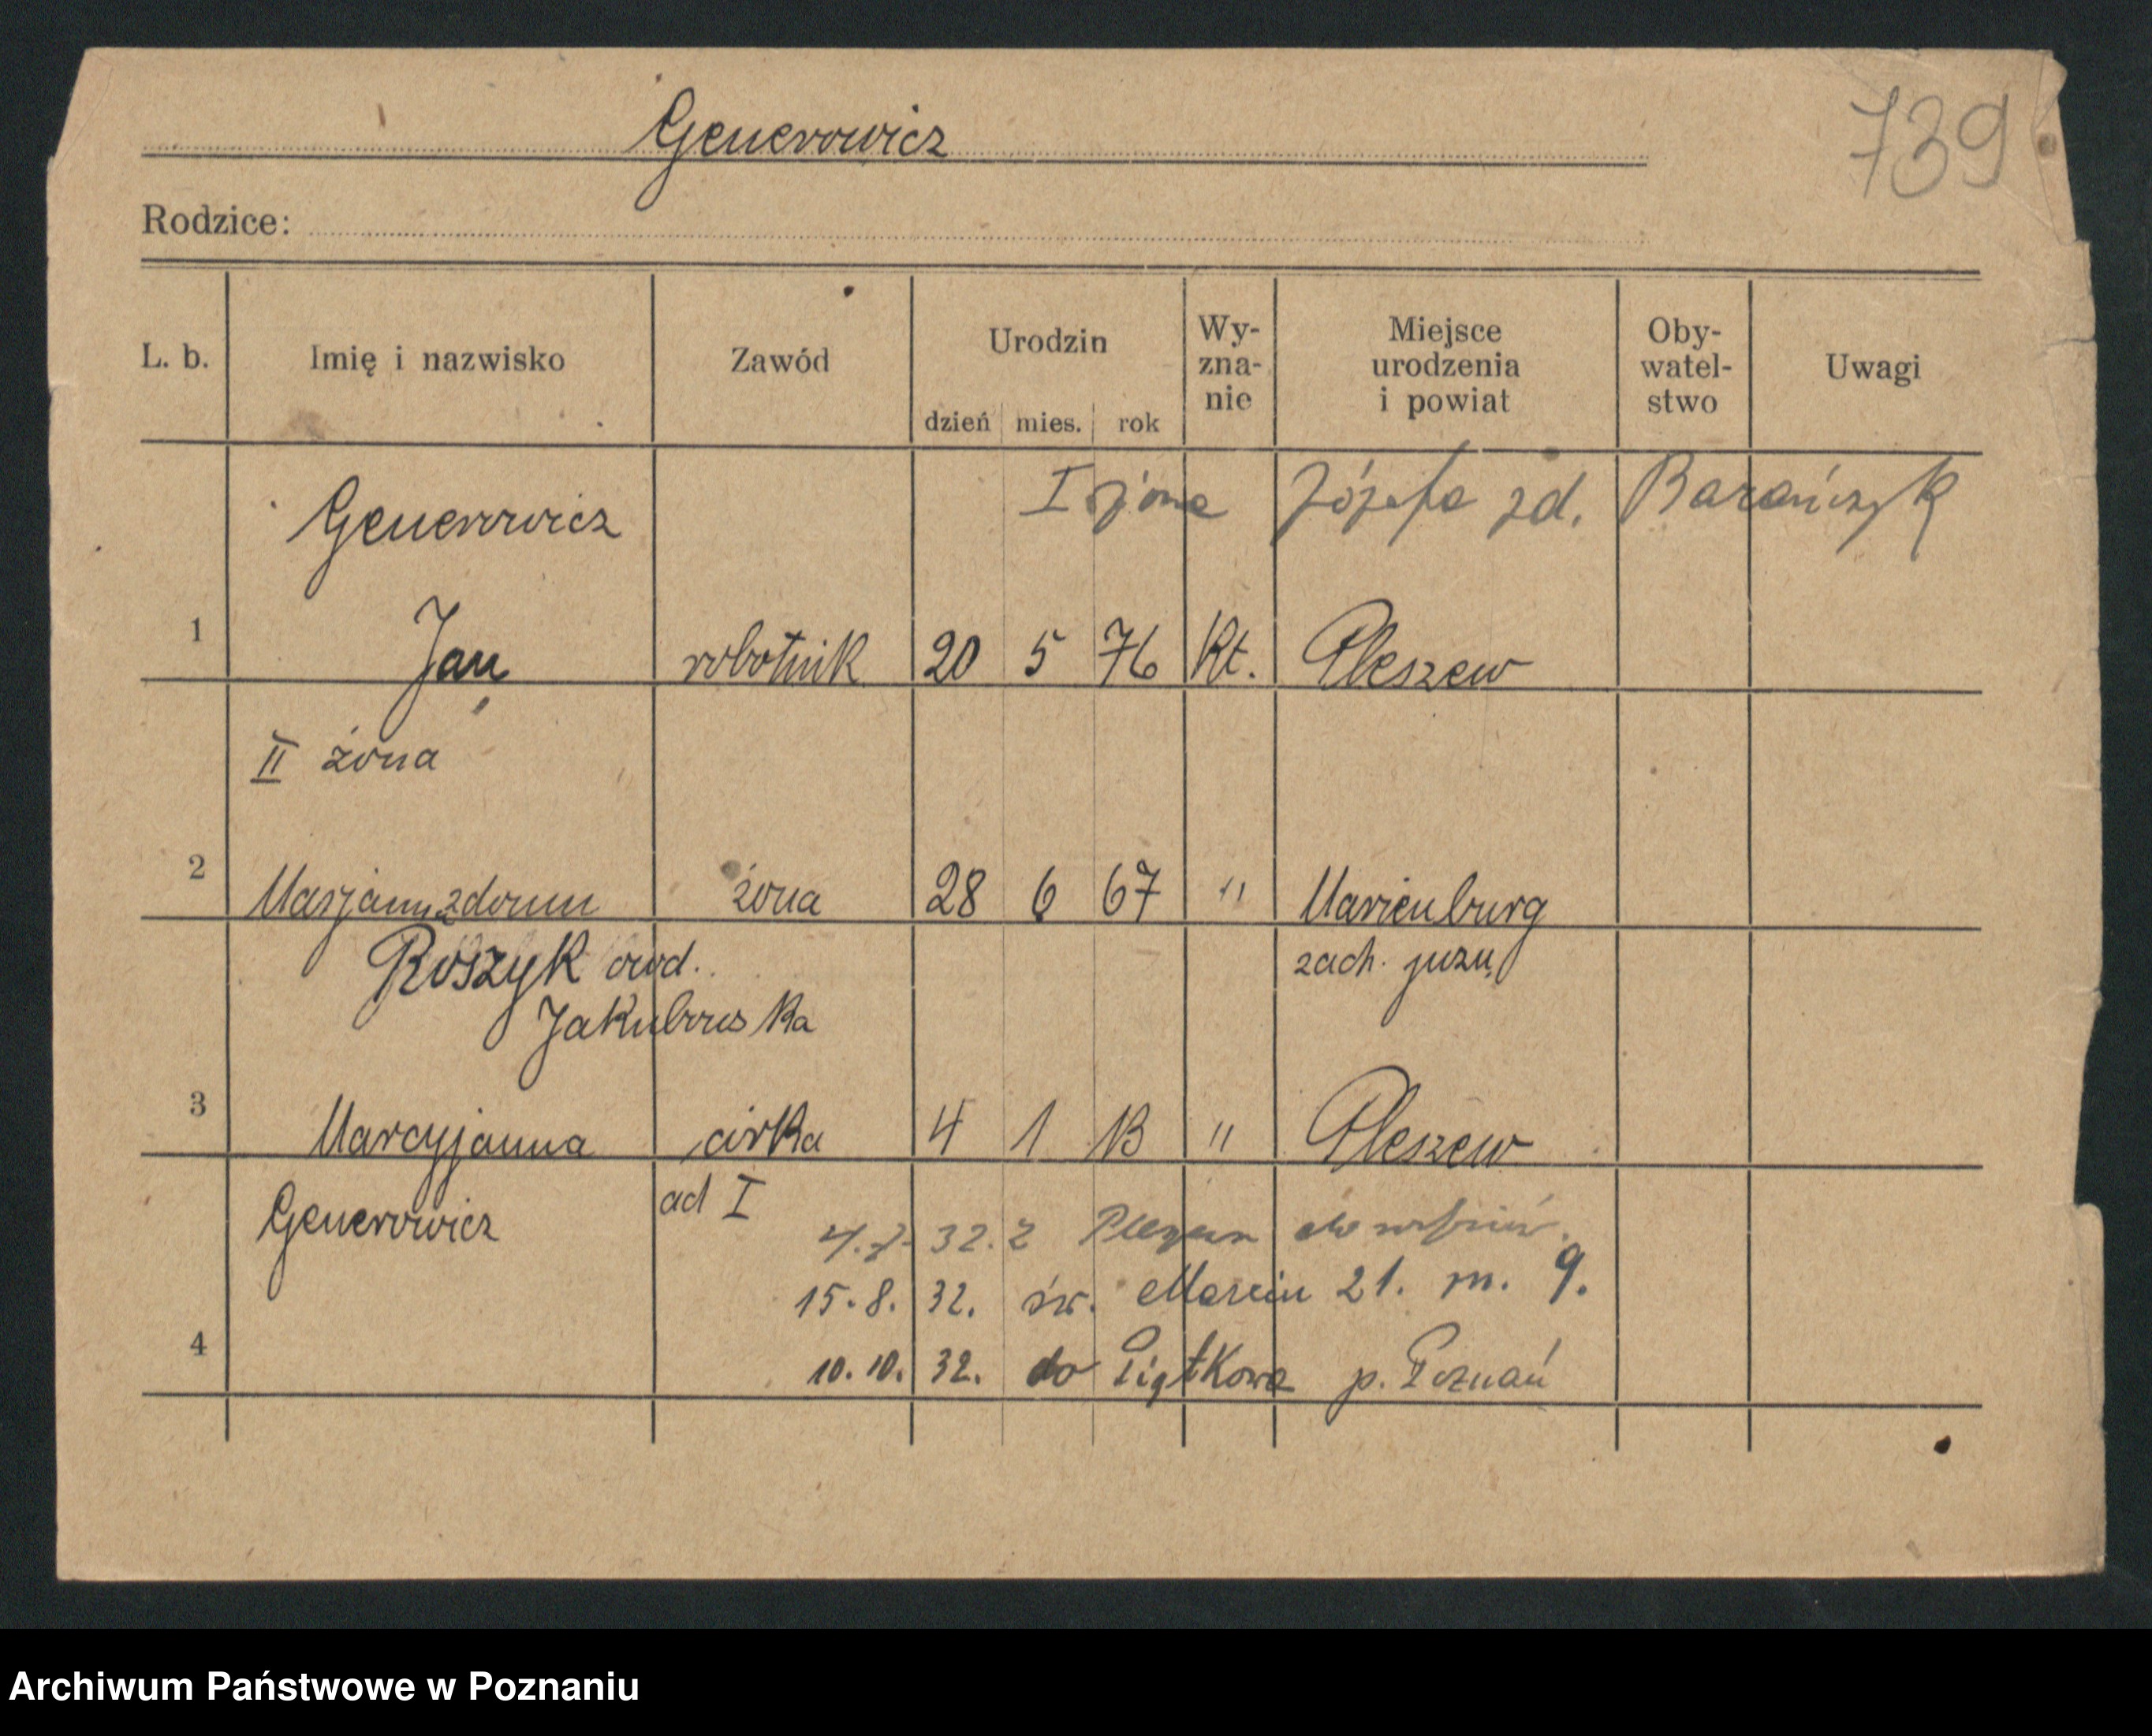 Generowicz
739
Rodzice:
L. b.
Imię i nazwisko
Zawód
Urodzin
dzień mies. rok
Wy-
zna-
nie
Miejsce
urodzenia
i powiat
Oby-
watel-
stwo
Uwagi
Generowicz I żona Józefa zd. Barańczyk
1 Jan robotnik 20 5 76 kt. Pleszew
II żona
2 Marjanna z domu żona 28 6 67 " Marienburg
Roszyk owd. zach. prusy
Jakubowska
3 Marcyjanna córka 4 1 13 " Pleszew
Generowicz ad I
32. z Pleszewa
15. 8. 32. św. Marcin 21. m. 9.
4
10. 10. 32. do Piątkowa p. Poznań
Archiwum Państwowe w Poznaniu